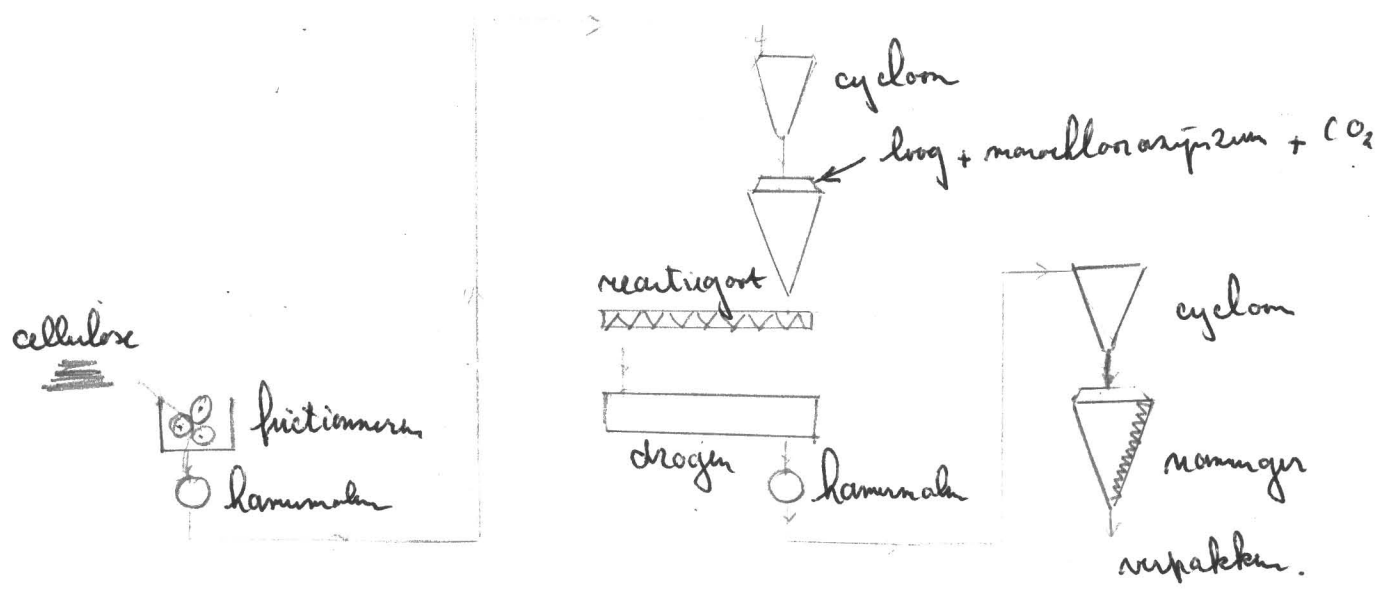 cycloon
loog + monochloorazijnzuur + CO2
reactiegoot
cycloon
cellulose
frictionneren
hamermolen
drogen
hamermolen
menger
verpakken.